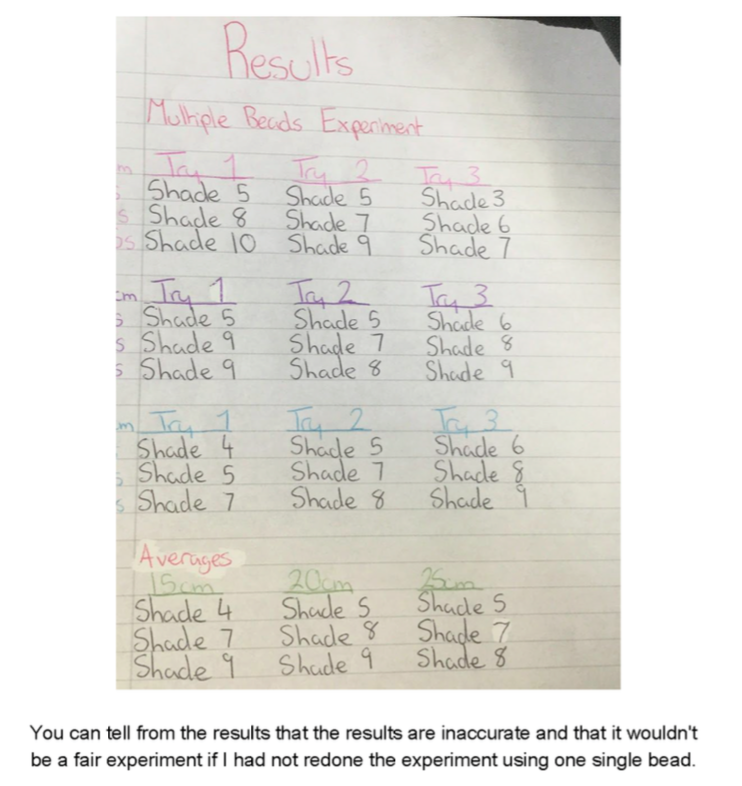 Results
Multiple Beads Experiment
m Try 1 Try 2 Try 3
s Shade 5 Shade 5 Shade 3
s Shade 8 Shade 7 Shade 6
os Shade 10 Shade 9 Shade 7
cm Try 1 Try 2 Try 3
s Shade 5 Shade 5 Shade 6
s Shade 9 Shade 7 Shade 8
s Shade 9 Shade 8 Shade 9
m Try 1 Try 2 Try 3
Shade 4 Shade 5 Shade 6
s Shade 5 Shade 7 Shade 8
s Shade 7 Shade 8 Shade 9
Averages
15cm 20cm 25cm
Shade 4 Shade 5 Shade 5
Shade 7 Shade 8 Shade 7
Shade 9 Shade 9 Shade 8
You can tell from the results that the results are inaccurate and that it wouldn't
be a fair experiment if I had not redone the experiment using one single bead.